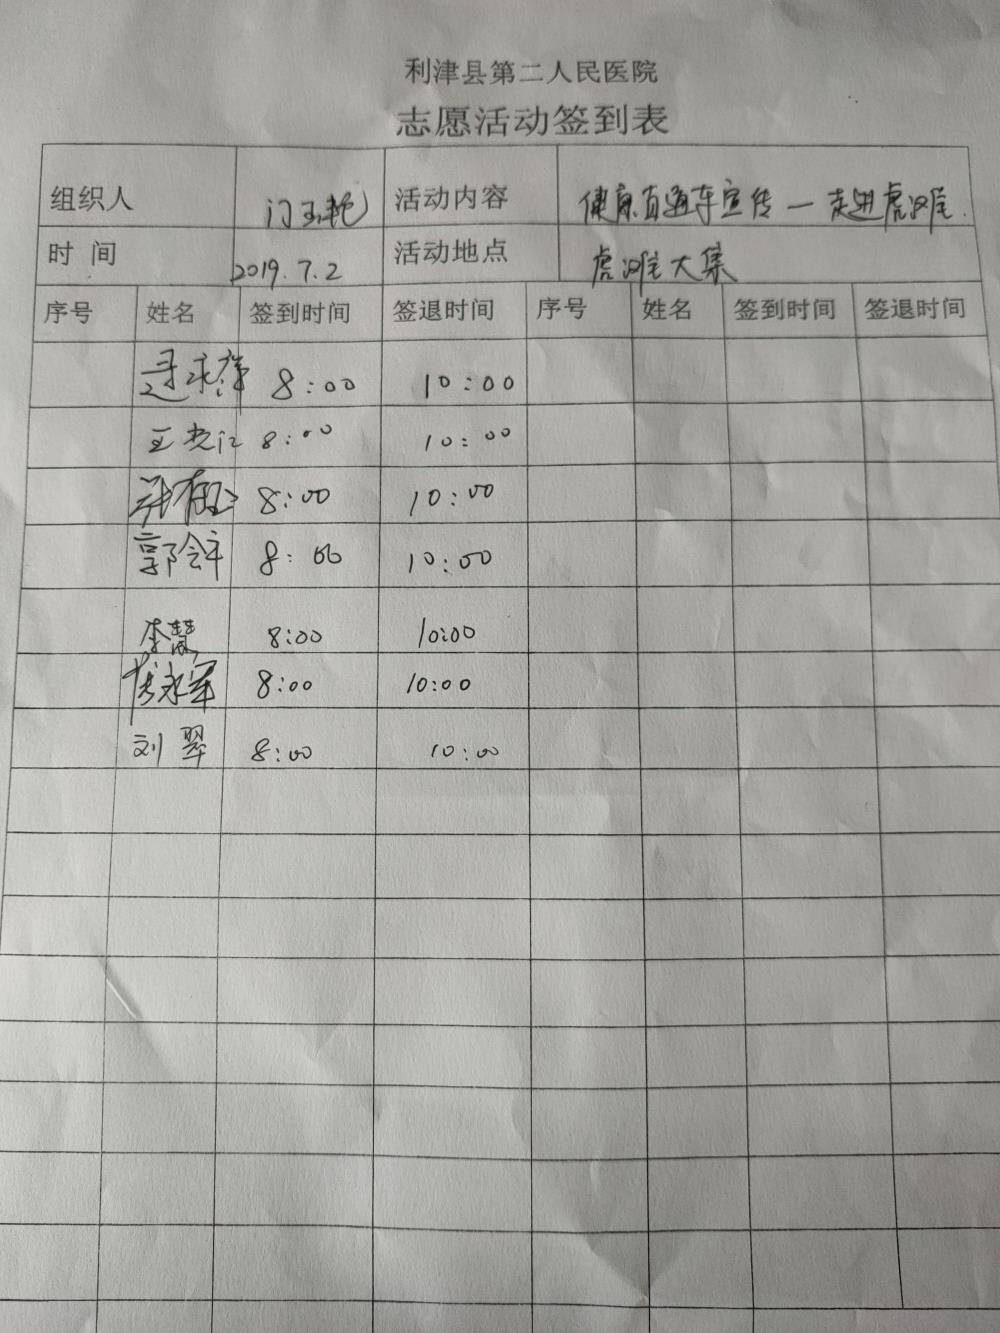 利津县第二人民医院
志愿活动签到表
组织人 门玉艳 活动内容 健康直通车宣传—走进虎滩.
时 间 2019.7.2 活动地点 虎滩大集
序号 姓名 签到时间 签退时间 序号 姓名 签到时间 签退时间
8:00 10:00
8:00 10:00
8:00 10:00
郭会军 8:00 10:00
李慧 8:00 10:00
永军 8:00 10:00
刘翠 8:00 10:00